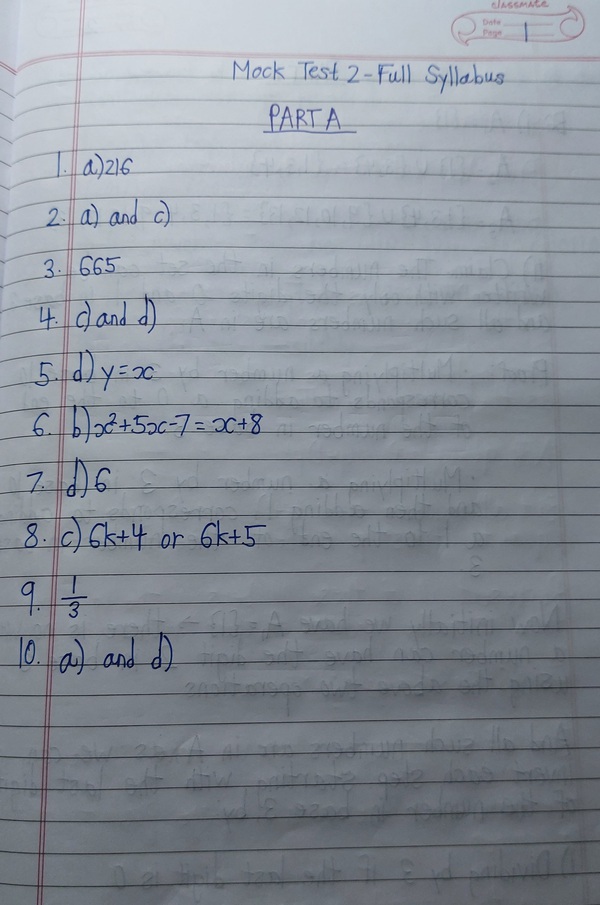 classmate
Date
Page 1
Mock Test 2 - Full Syllabus
PART A
1. a) 216
2. a) and c)
3. 665
4. c) and d)
5. d) y = x
6. b) x² + 5x - 7 = x + 8
7. d) 6
8. c) 6k+4 or 6k+5
9. 1/3
10. a) and d)